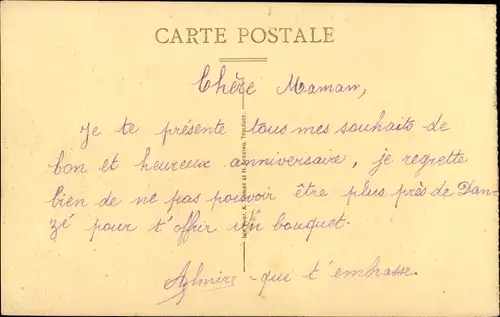 CARTE POSTALE
Chère Maman,
Je te présente tous mes souhaits de
bon et heureux anniversaire, je regrette
bien de ne pas pouvoir être plus près de Dan-
zé pour t'offrir un bouquet.
qui t'embrasse.